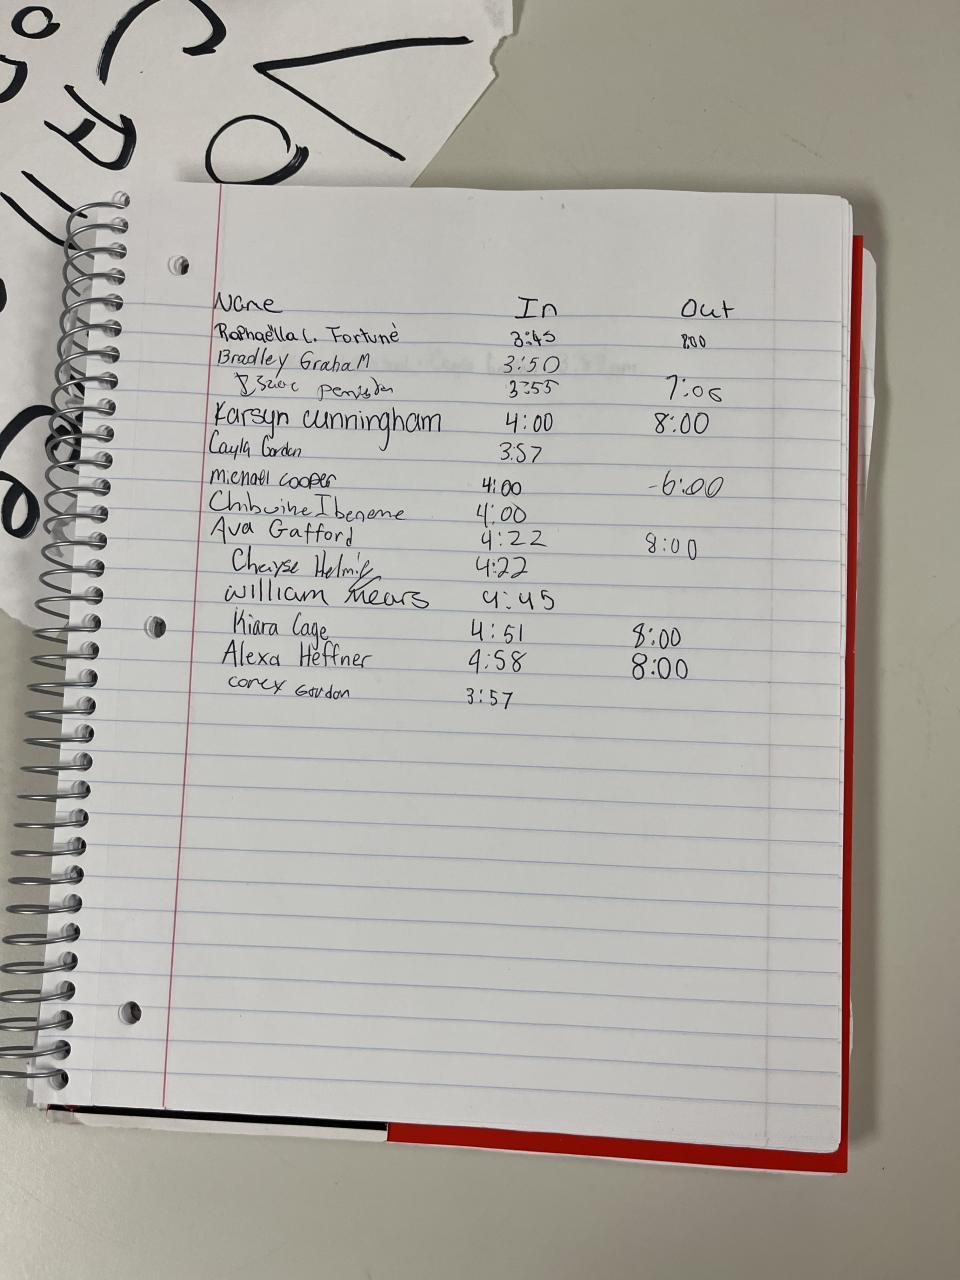 VO
CA
Name In Out
Raphaëlla L. Fortuné 3:45 8:00
Bradley Graham 3:50
Isaac 3:55 7:06
Karsyn Cunningham 4:00 8:00
Cayla Gordon 3:57
michael cooper 4:00 -6:00
Ibeneme 4:00
Ava Gafford 4:22 8:00
Chayse 4:22
william mears 4:45
Kiara Cage 4:51 8:00
Alexa Heffner 4:58 8:00
corey Gordon 3:57